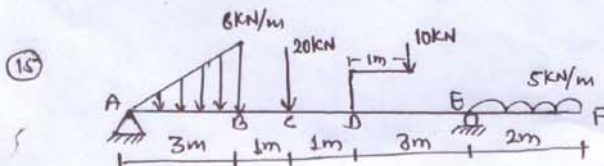 15
8KN/m
20KN
1m
10KN
5KN/m
A B C D E F
3m 1m 1m 3m 2m